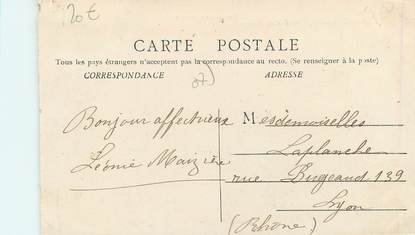 20€
CARTE POSTALE
Tous les pays étrangers n'acceptent pas la correspondance au recto. (Se renseigner à la poste)
CORRESPONDANCE
ADRESSE
07)
Bonjour affectueux
Léonie
Mesdemoiselles
Laplanche
rue Bugeaud 139
Lyon
(Rhône)